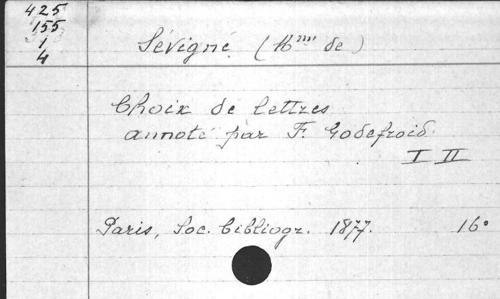 425
155
1
4
Sévigné (Mme de)
Choix de lettres
annoté par F. Godefroid.
I II
Paris, Soc. bibliogr. 1877. 16°